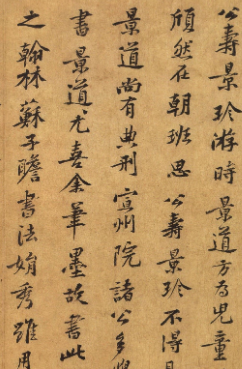 公壽景珍游時景道方為兒童
頎然在朝班思公壽景珍不得見
景道尚有典刑宣州院諸公多學
書景道尤喜余筆墨故書此
之翰林蘇子瞻書法娟秀雖用